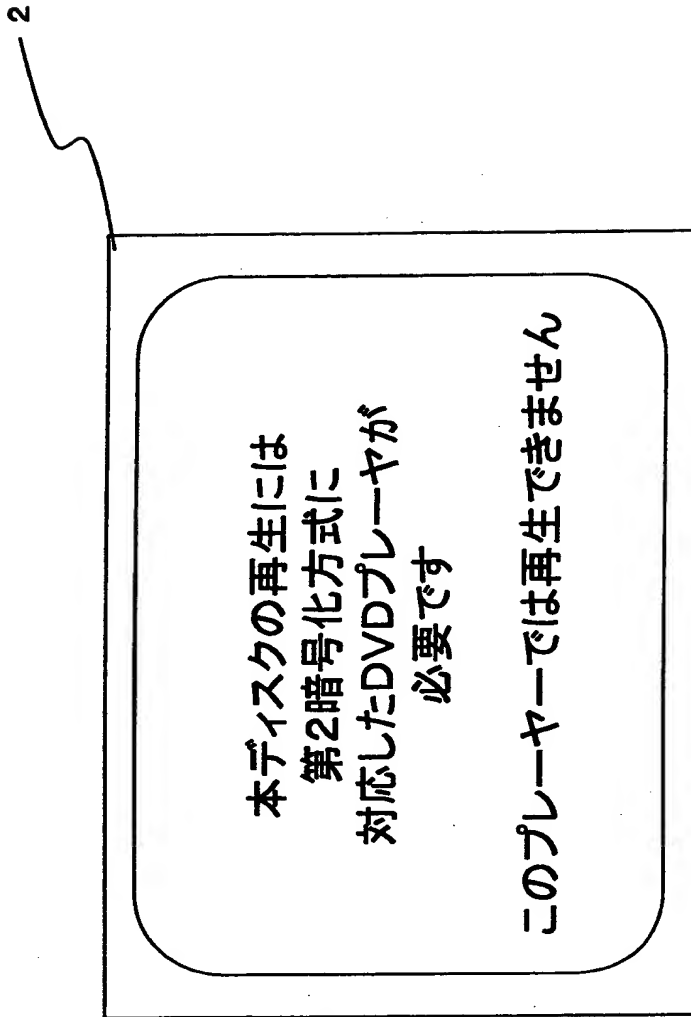 2
本ディスクの再生には
第2暗号化方式に
対応したDVDプレーヤが
必要です
このプレーヤーでは再生できません